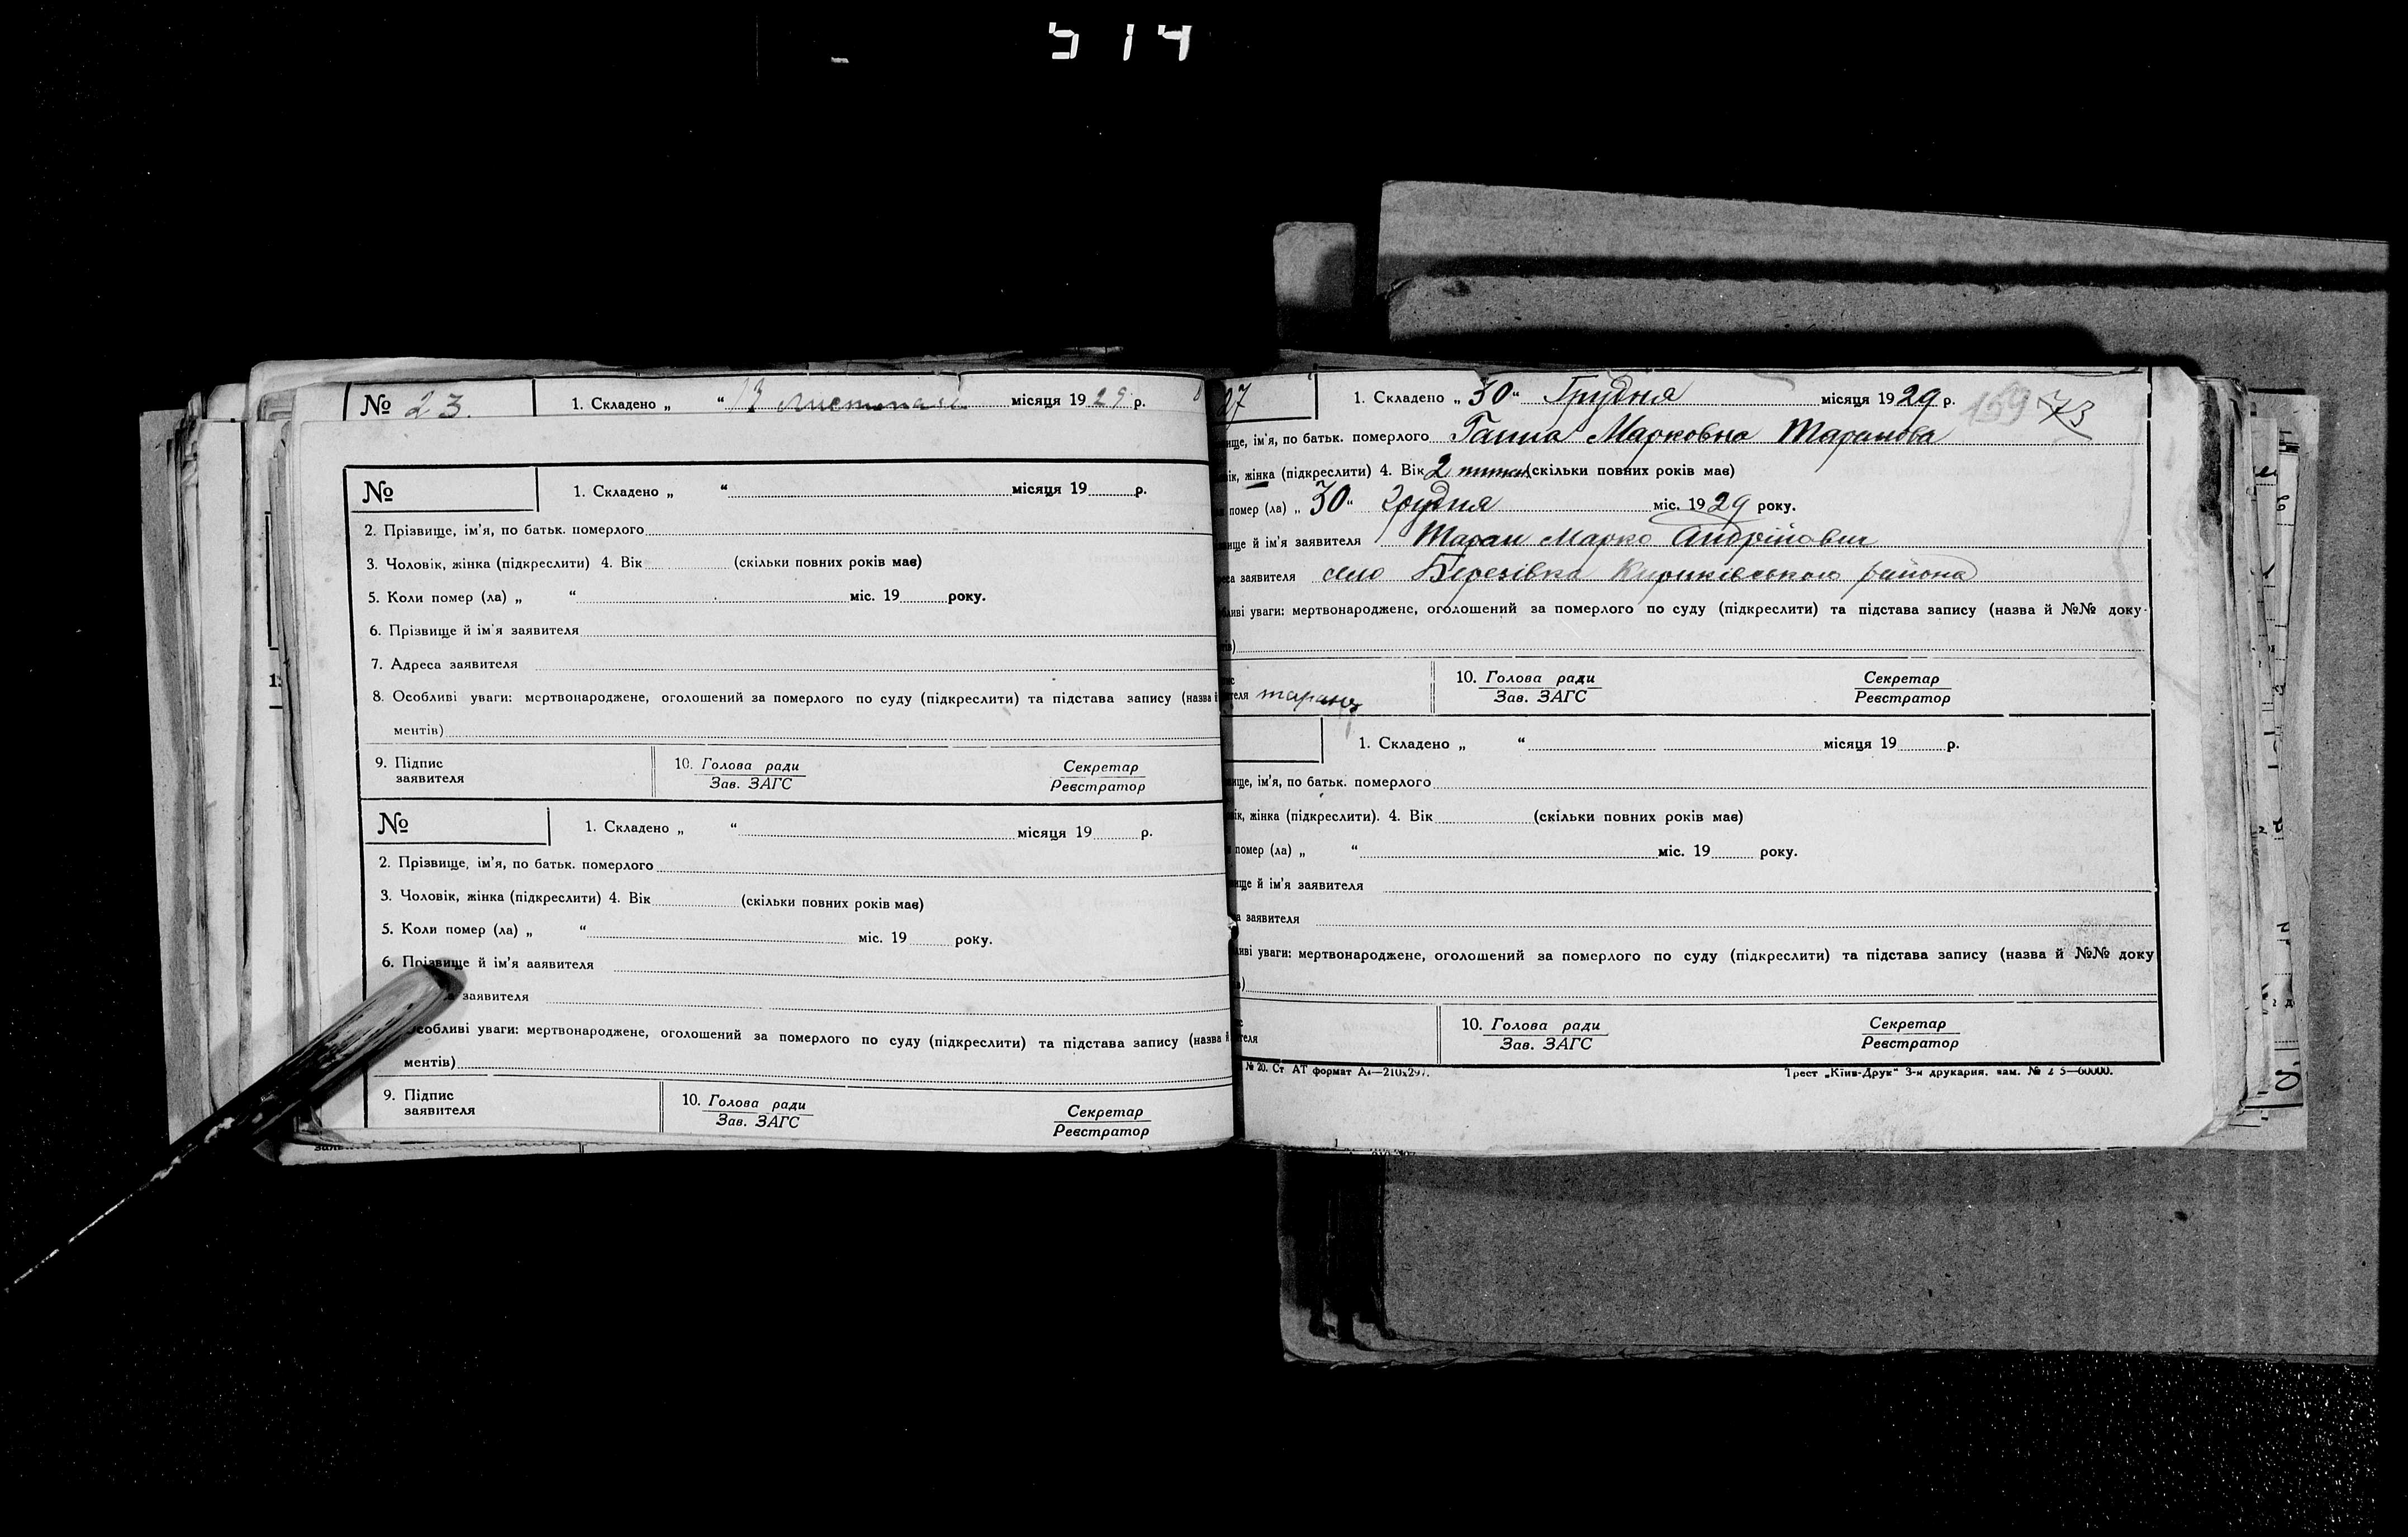 514
№ 23. 1. Складено „ “ 13 Листопада місяця 1929 р.
№ 1. Складено „ “ місяця 19 р.
2. Прізвище, ім'я, по батьк. померлого
3. Чоловік, жінка (підкреслити) 4. Вік (скільки повних років має)
5. Коли помер (ла) „ “ міс. 19 року.
6. Прізвище й ім'я заявителя
7. Адреса заявителя
8. Особливі уваги: мертвонароджене, оголошений за померлого по суду (підкреслити) та підстава запису (назва й
ментів)
9. Підпис заявителя
10. Голова ради Зав. ЗАГС
Секретар Реєстратор
№ 1. Складено „ “ місяця 19 р.
2. Прізвище, ім'я, по батьк. померлого
3. Чоловік, жінка (підкреслити) 4. Вік (скільки повних років має)
5. Коли помер (ла) „ “ міс. 19 року.
6. Прізвище й ім'я заявителя
заявителя
Особливі уваги: мертвонароджене, оголошений за померлого по суду (підкреслити) та підстава запису (назва й
ментів)
9. Підпис заявителя
10. Голова ради Зав. ЗАГС
Секретар Реєстратор
27 1. Складено „ 30 “ Грудня місяця 1929 р. 159 73
ище, ім'я, по батьк. померлого Ганна Марковна Таранова
вік, жінка (підкреслити) 4. Вік 2 (скільки повних років має)
помер (ла) „ 30 “ Грудня міс. 1929 року.
вище й ім'я заявителя Таран Марко Андрійович
еса заявителя село Березівка Кириківського района
бливі уваги: мертвонароджене, оголошений за померлого по суду (підкреслити) та підстава запису (назва й №№ доку-
тів)
ителя таранъ
10. Голова ради Зав. ЗАГС
Секретар Реєстратор
1. Складено „ “ місяця 19 р.
вище, ім'я, по батьк. померлого
вік, жінка (підкреслити). 4. Вік (скільки повних років має)
помер (ла) „ “ міс. 19 року.
вище й ім'я заявителя
а заявителя
ливі уваги: мертвонароджене, оголошений за померлого по суду (підкреслити) та підстава запису (назва й №№ доку
в)
ителя
10. Голова ради Зав. ЗАГС
Секретар Реєстратор
№ 20. Ст АТ формат А4—210х297.
Трест „Київ-Друк“ 3-я друкарня. зам. № 2 5—60000.